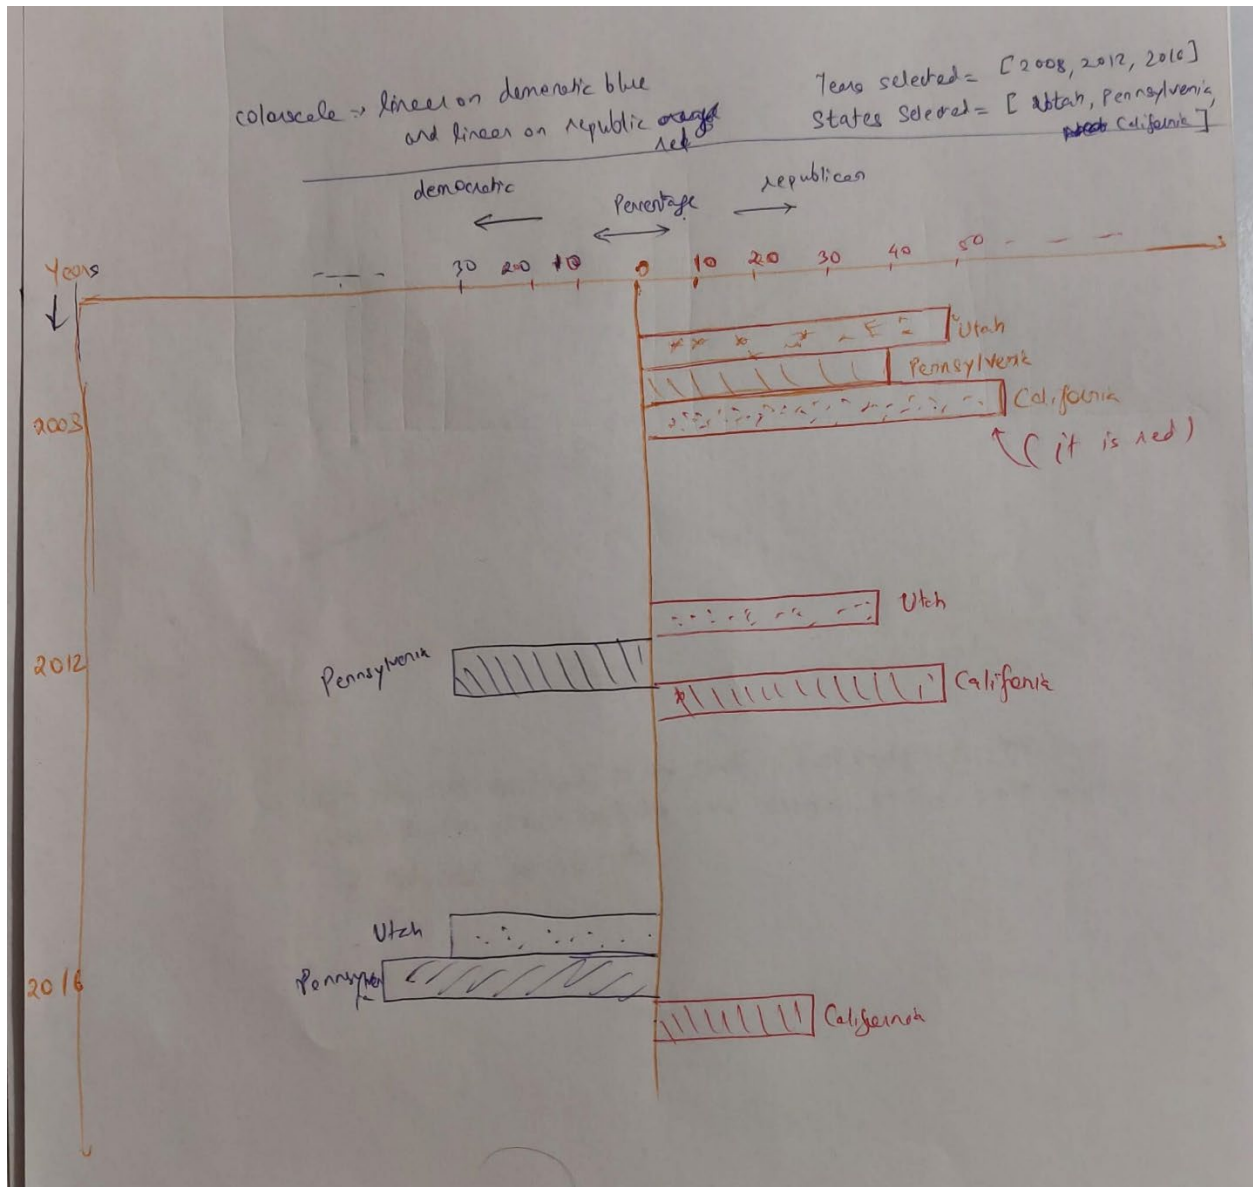 colorscale → lineer on demeratic blue
and lineer on republic
red
Years selected = [2008, 2012, 2016]
States Selered = [ Utah, Pennsylvenia,
Califernia ]
democratic
Percentage
republican
Years
30 200 10 0 10 20 30 40 50
Utah
Pennsylvenia
California
(it is red)
2003
Utah
2012
Pennsylvenia
Califonia
Utah
2016
Pennsylven
Califernia